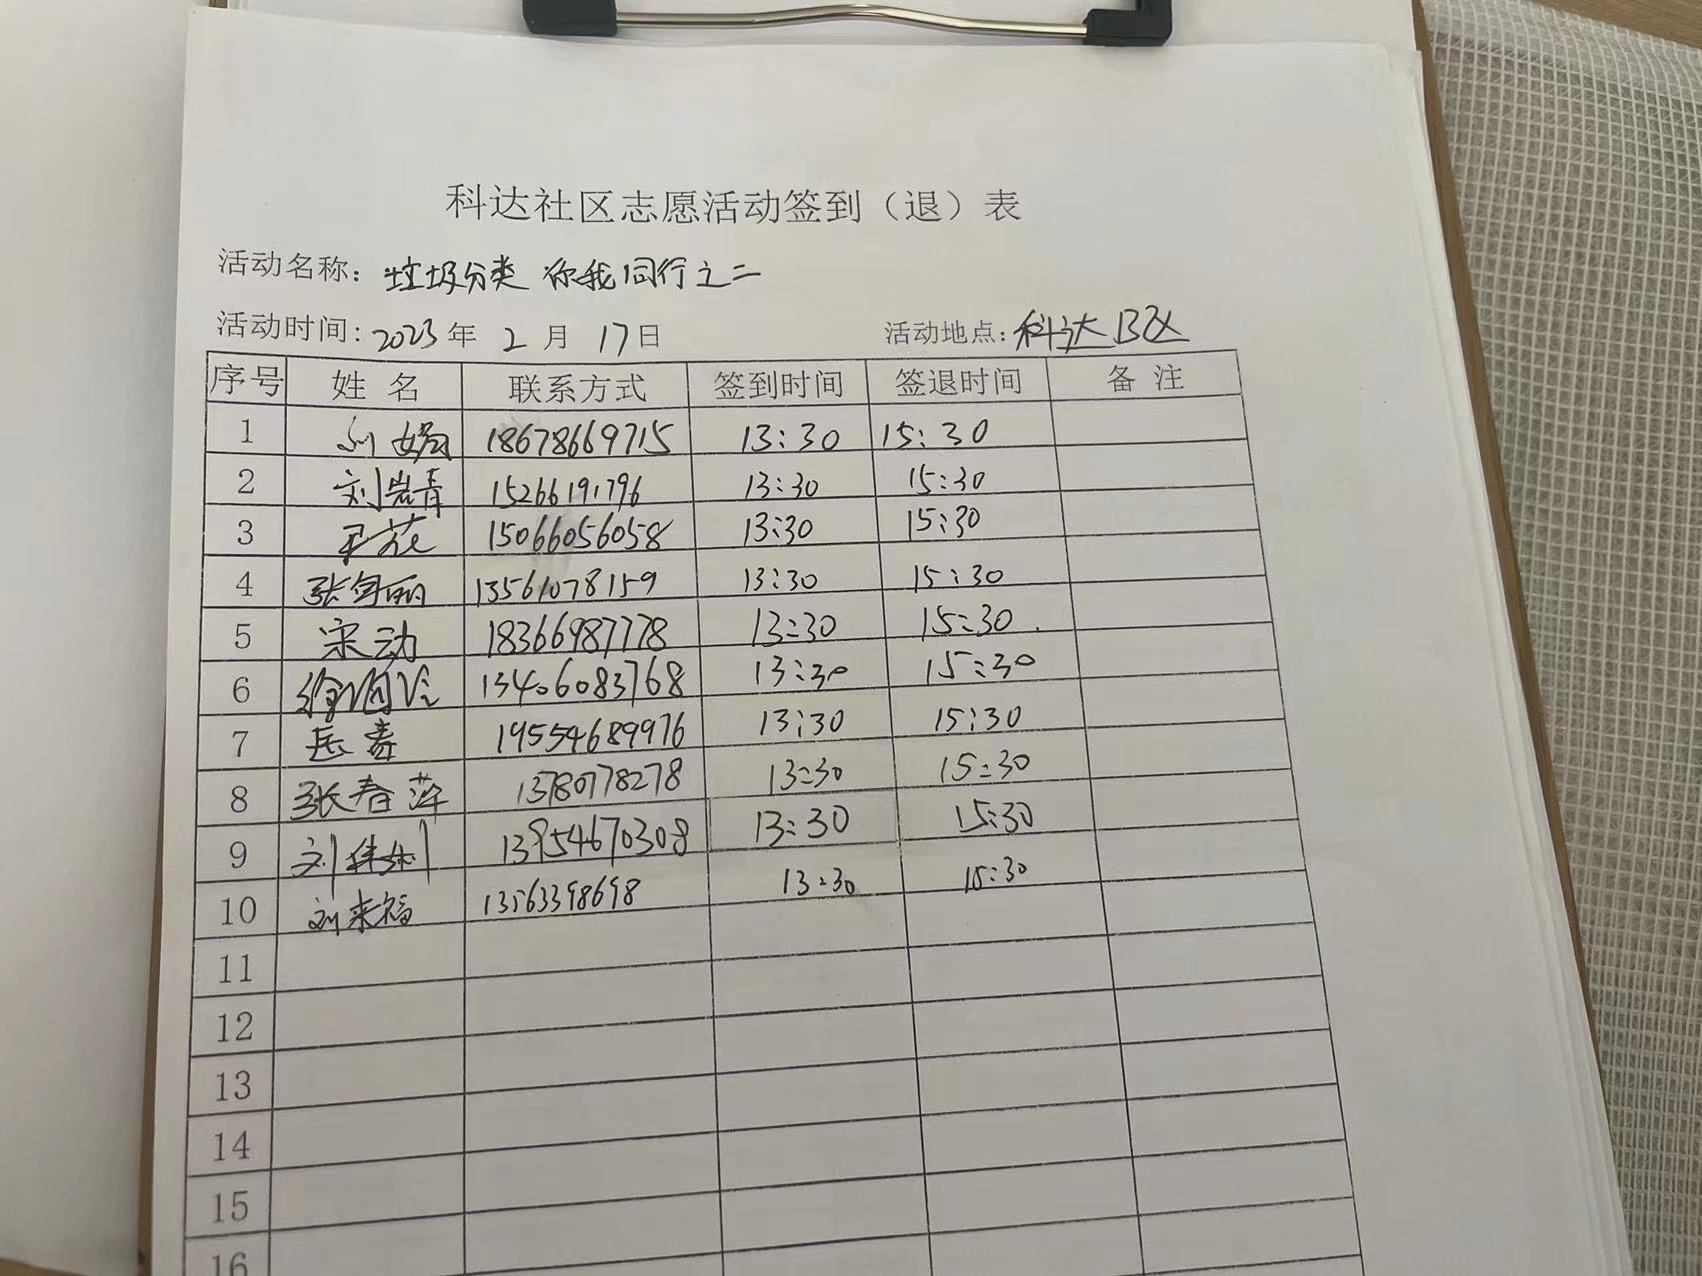 科达社区志愿活动签到（退）表
活动名称：垃圾分类 你我同行之二
活动时间：2023年 2 月 17日 活动地点：科达B区
序号 姓名 联系方式 签到时间 签退时间 备注
1 刘娟 18678669715 13:30 15:30
2 刘岩青 15266191796 13:30 15:30
3 花 15066056058 13:30 15:30
4 张丽 13561078159 13:30 15:30
5 宋动 18366987778 13:30 15:30
6 徐 13406083768 13:30 15:30
7 岳 19554689976 13:30 15:30
8 张春萍 13780778278 13:30 15:30
9 刘 13954670308 13:30 15:30
10 刘来福 13563398698 13:30 15:30
11
12
13
14
15
16